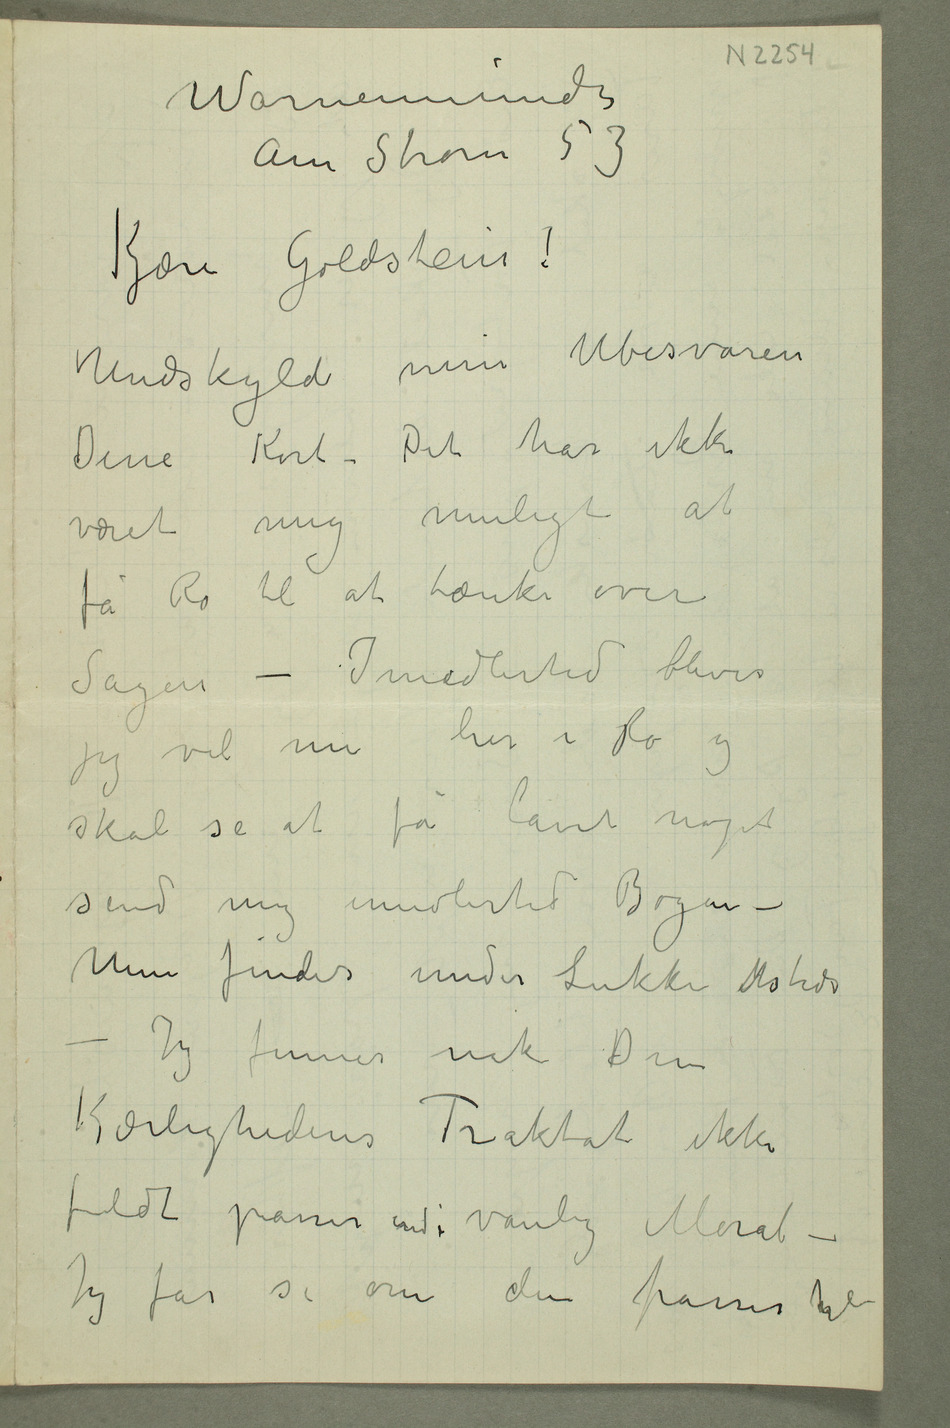 N 2254
Warnemünde
Am Strom 53
Kjære Goldstein!
Undskyld min Ubesvaren
Dine Kort – Det har ikke
været mig muligt at
få Ro til at tænke over
Sagen – Imedlertid blives
jeg vel nu her i Ro og
skal se at få lavet noget
send mig imidlertid Bogen –
Min findes under Lukke etsteds
– Jeg finner nok Din
Kærlighedens Traktat ikke
fuldt passer ind i vanlig Moral –
Jeg får se om den passer